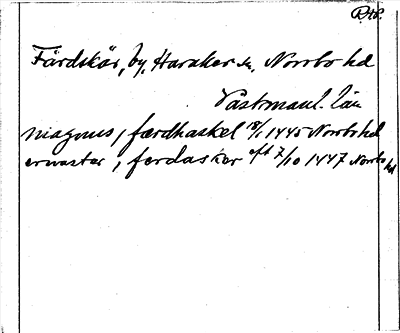 Färdskär, by, Haraker sn, Norrbo hd
Västmanl. län
magnus i færdhaskel 18/1 1445 Norrbo hd
ernaster i ferdaskær eft 7/10 1447 Norrbo hd